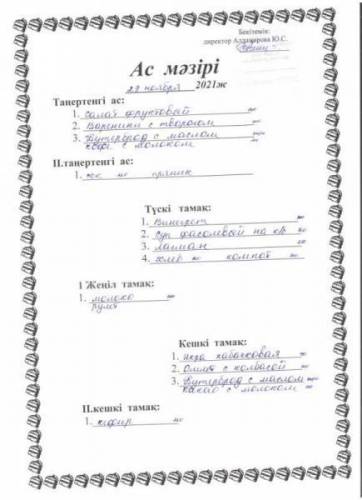 Бекітемін:
директор Алдажарова Ю.С.
Ас мәзірі
29 ноября 2021ж
Таңертеңгі ас:
1. Салат фруктовый
2. Вареники с творогом
3. Бутерброд с маслом
кофе с молоком
II.таңертеңгі ас:
1. сок пряник
Түскі тамақ:
1. Винегрет
2. Суп фасолевый на к/б
3. Лагман
4. хлеб компот
1 Жеңіл тамақ:
1. молоко
рулет
Кешкі тамақ:
1. Икра кабачковая
2. Омлет с колбасой
3. Бутерброд с маслом
какао с молоком
II.кешкі тамақ:
1. кефир